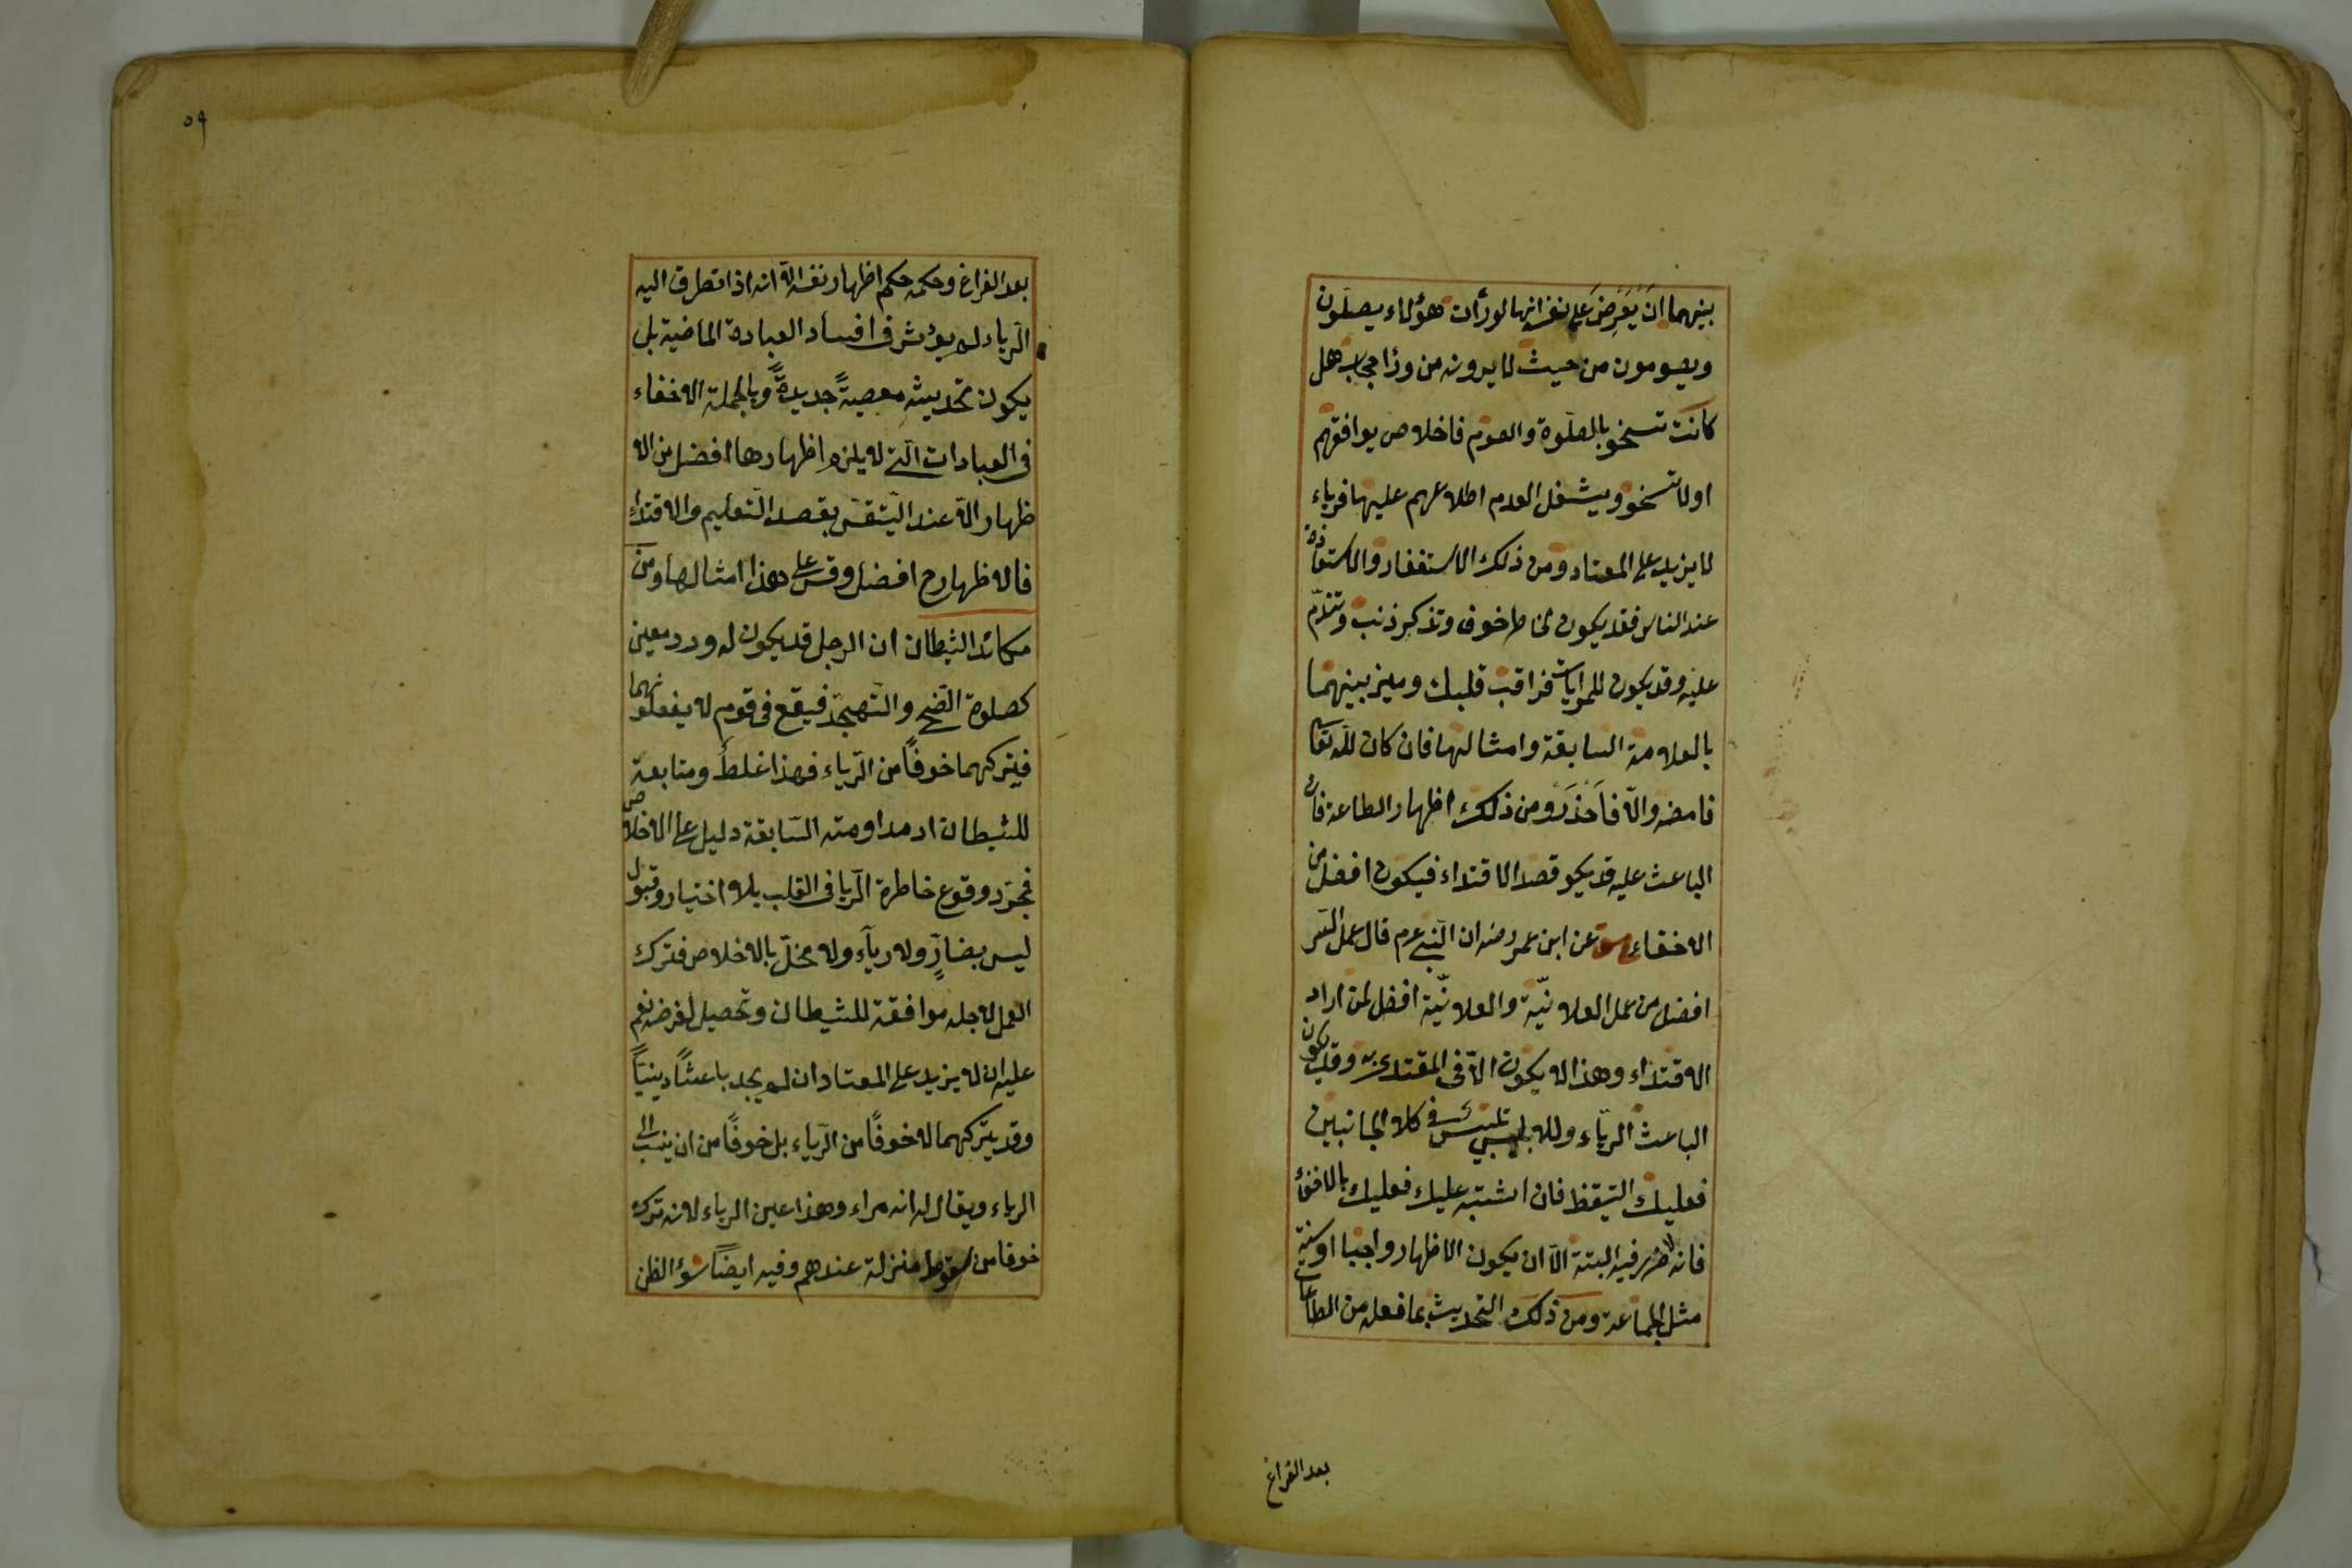 بينهما ان يَعرِضَ على نفسه انها لو رأت هؤلاء يصلّون
ويصومون من حيث لا يرونه من ورا حجاب هل
كانت تسخو بالصلوة والصوم فاخلاص يوافقهم
اولا تسخو ويثقل لعدم اطلاعهم عليها فرياء
لا يزيد على المعتاد ومن ذلك الاستغفار والاستعاذة
عند الناس فقد يكون لخاطر خوف وتذكر ذنب وتندّم
عليه وقد يكون للمراياة فراقب قلبك وميز بينهما
بالعلامة السابقة وامثالها فان كان لله تعا
فامضه والّا فاَحذَر ومن ذلك اظهار الطاعة فان
الباعث عليه قد يكو قصد الاقتداء فيكون افضل من
الاخفاء عن ابن عمر رضه ان النبي عم قال عمل السر
افضل من عمل العلانيّة والعلانيّة افضل لمن اراد
الاقتداء وهذا لا يكون الّا فى المقتدى به وقد يكون
الباعث الرياء ولابليس تلبيس فى كلا الجانبين
فعليك التيقظ فان اشتبه عليك فعليك بالاخفاء
فانه لا ضرر فيه البتة الّا ان يكون الاظهار واجبا او سنة
مثل الجماعة ومن ذلك التحديث بما فعله من الطاعات
بعد الفراغ
٥٩
بعد الفراغ وحكمه حكم اظهار نفسه الّا انه اذا تطرق اليه
الرّياء لم يؤثر فى افساد العبادة الماضية بل
يكون تحديثه معصيةً جديدةً وبالجملة الاخفاء
فى العبادات الّتى لا يلزم اظهارها افضل من الا
ظهار الّا عند التيقن بقصد التّعليم والاقتداء
فالاظهار ح افضل وقس على هذا امثالها ومن
مكائد الشيطان ان الرجل قد يكون له ورد معين
كصلوة الضّحى والتّهجّد فيقع فى قوم لا يفعلونهما
فيتركهما خوفًا من الرّياء فهذا غلطٌ ومتابعة
للشيطان اذ مداومته السّابقة دليل على الاخلاص
فمجرّد وقوع خاطرة الرّيا فى القلب بلا اختيار وقبول
ليس بضارٍّ ولا رياء ولا مخلّ بالاخلاص فترك
العمل لاجله موافقة للشيطان وتحصيل لغرضه نعم
عليه ان لا يزيد على المعتاد ان لم يجد باعثًا دينيًّا
وقد يتركهما لا خوفًا من الرّياء بل خوفًا من ان ينسب الى
الرياء ويقال له انه مراء وهذا عين الرياء لانه تركه
خوفا من سقوط منزلة عندهم وفيه ايضًا سوء الظن